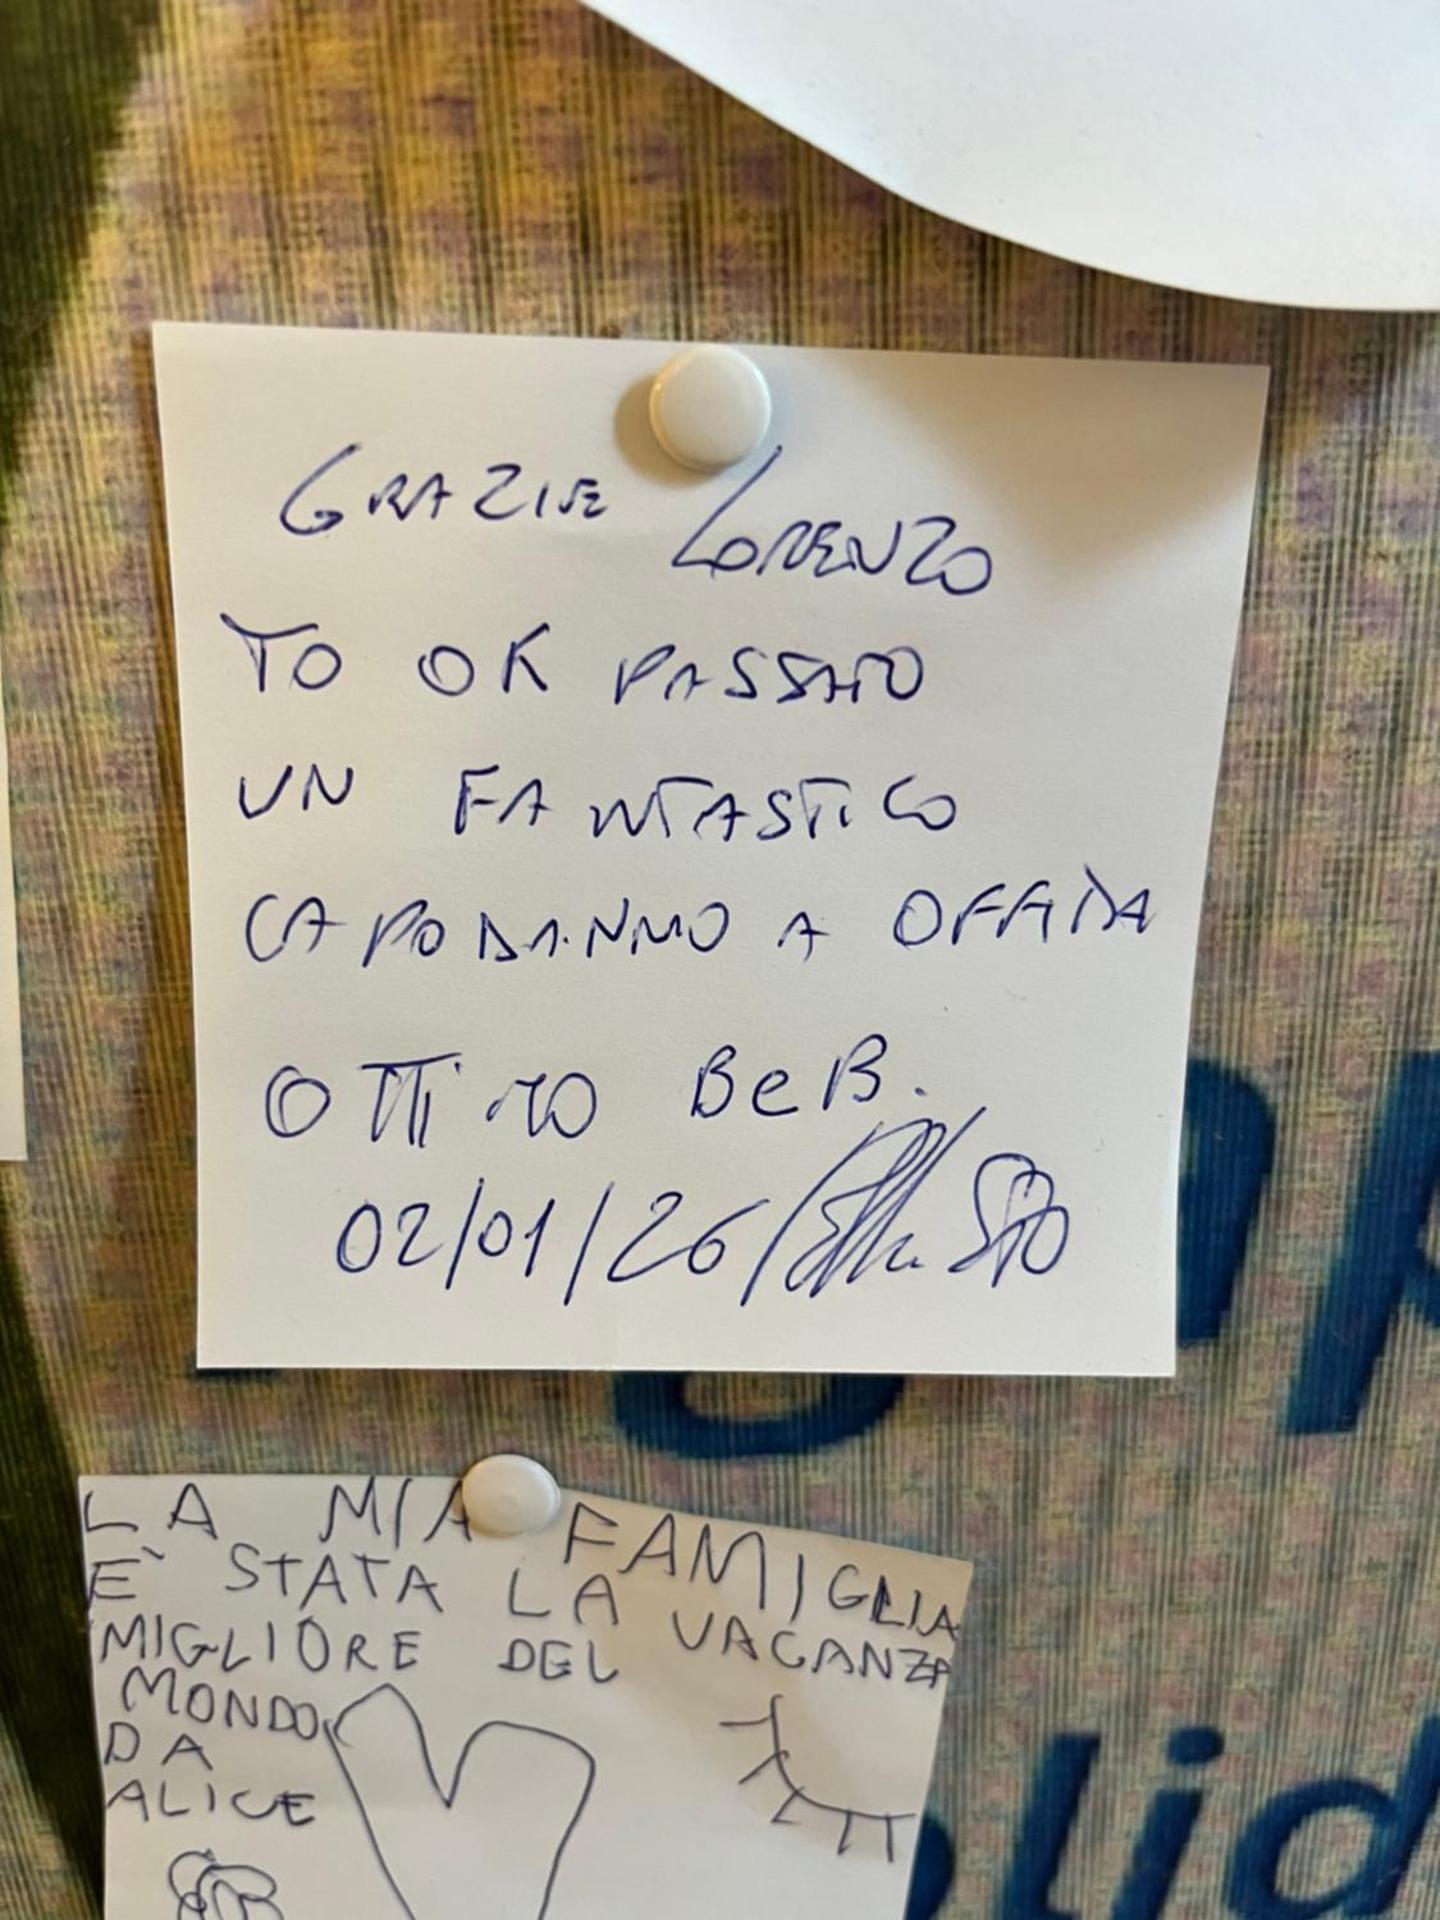 GRAZIE LORENZO
TO OK PASSATO
UN FANTASTICO
CAPODANNO A OFFIDA
OTTIMO BeB.
02/01/26
LA MIA FAMIGLIA
È STATA LA VACANZA
MIGLIORE DEL
MONDO
DA
ALICE
lid